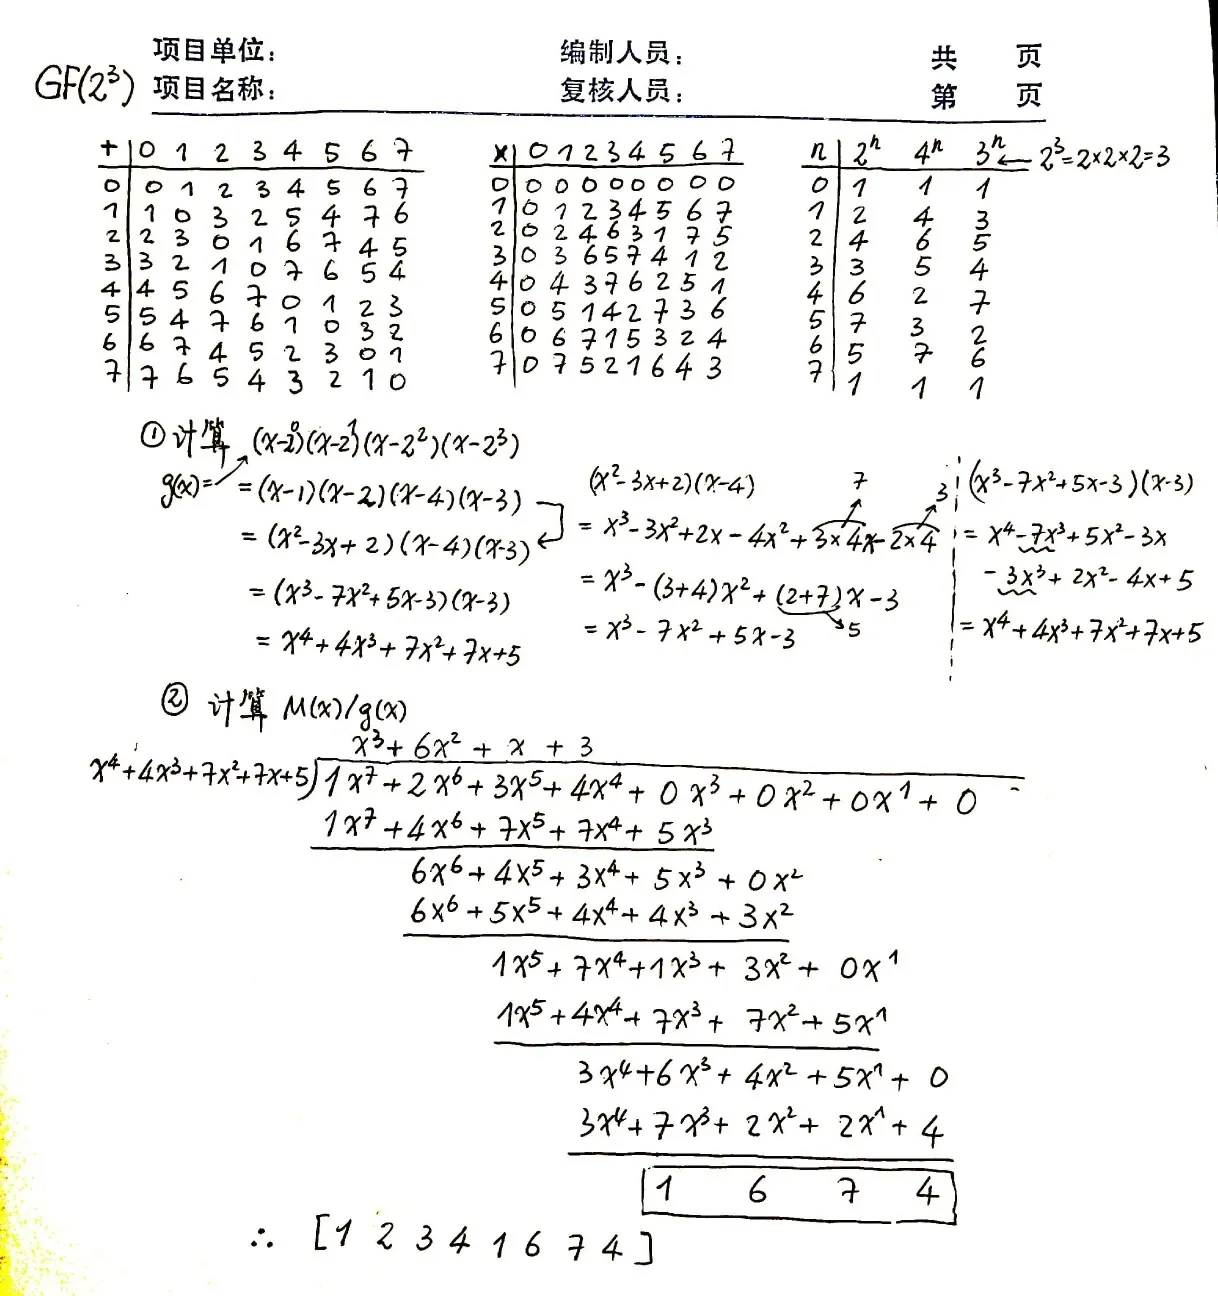 项目单位： 编制人员： 共 页
GF(2³) 项目名称： 复核人员： 第 页
+ 0 1 2 3 4 5 6 7
0 0 1 2 3 4 5 6 7
1 1 0 3 2 5 4 7 6
2 2 3 0 1 6 7 4 5
3 3 2 1 0 7 6 5 4
4 4 5 6 7 0 1 2 3
5 5 4 7 6 1 0 3 2
6 6 7 4 5 2 3 0 1
7 7 6 5 4 3 2 1 0
x 0 1 2 3 4 5 6 7
0 0 0 0 0 0 0 0 0
1 0 1 2 3 4 5 6 7
2 0 2 4 6 3 1 7 5
3 0 3 6 5 7 4 1 2
4 0 4 3 7 6 2 5 1
5 0 5 1 4 2 7 3 6
6 0 6 7 1 5 3 2 4
7 0 7 5 2 1 6 4 3
n 2ⁿ 4ⁿ 3ⁿ ← 2³=2×2×2=3
0 1 1 1
1 2 4 3
2 4 6 5
3 3 5 4
4 6 2 7
5 7 3 2
6 5 7 6
7 1 1 1
① 计算 (x-2⁰)(x-2¹)(x-2²)(x-2³)
g(x)= =(x-1)(x-2)(x-4)(x-3)
=(x²-3x+2)(x-4)(x-3)
=(x³-7x²+5x-3)(x-3)
= x⁴+4x³+7x²+7x+5
(x²-3x+2)(x-4) 7 3
= x³-3x²+2x-4x²+3×4x-2×4
= x³-(3+4)x²+(2+7)x-3
= x³-7x²+5x-3 5
(x³-7x²+5x-3)(x-3)
= x⁴-7x³+5x²-3x
-3x³+2x²-4x+5
= x⁴+4x³+7x²+7x+5
② 计算 M(x)/g(x)
x³+6x²+x+3
x⁴+4x³+7x²+7x+5)1x⁷+2x⁶+3x⁵+4x⁴+0x³+0x²+0x¹+0
1x⁷+4x⁶+7x⁵+7x⁴+5x³
6x⁶+4x⁵+3x⁴+5x³+0x²
6x⁶+5x⁵+4x⁴+4x³+3x²
1x⁵+7x⁴+1x³+3x²+0x¹
1x⁵+4x⁴+7x³+7x²+5x¹
3x⁴+6x³+4x²+5x¹+0
3x⁴+7x³+2x²+2x¹+4
1 6 7 4
∴ [1 2 3 4 1 6 7 4]